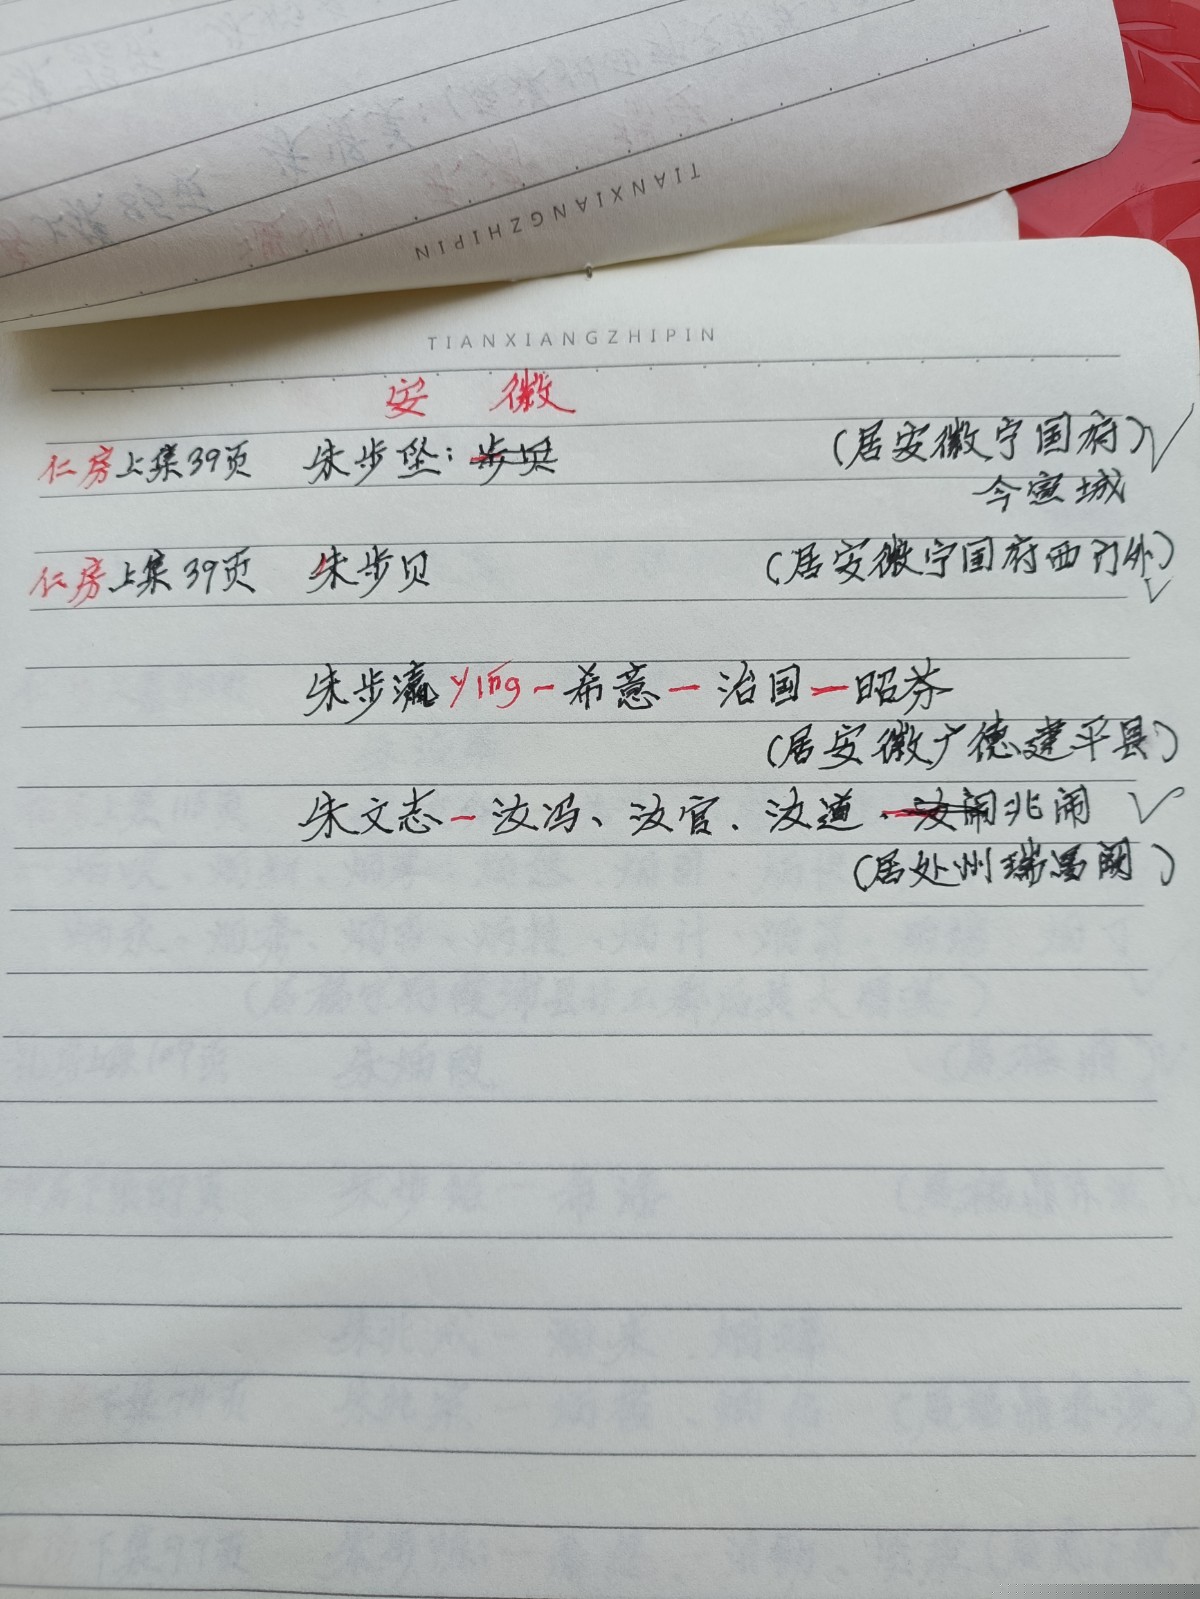 TIANXIANGZHIPIN
TIANXIANGZHIPIN
安 徽
仁房上集39页 朱步垈：步贝 (居安徽宁国府)
今宣城
仁房上集39页 朱步贝 (居安徽宁国府西门外)
朱步瀛 ying - 希意 - 治国 - 昭芬
(居安徽广德建平县)
朱文志 - 汝冯、汝官、汝道、汝闹兆闹
(居处州瑞昌阁)